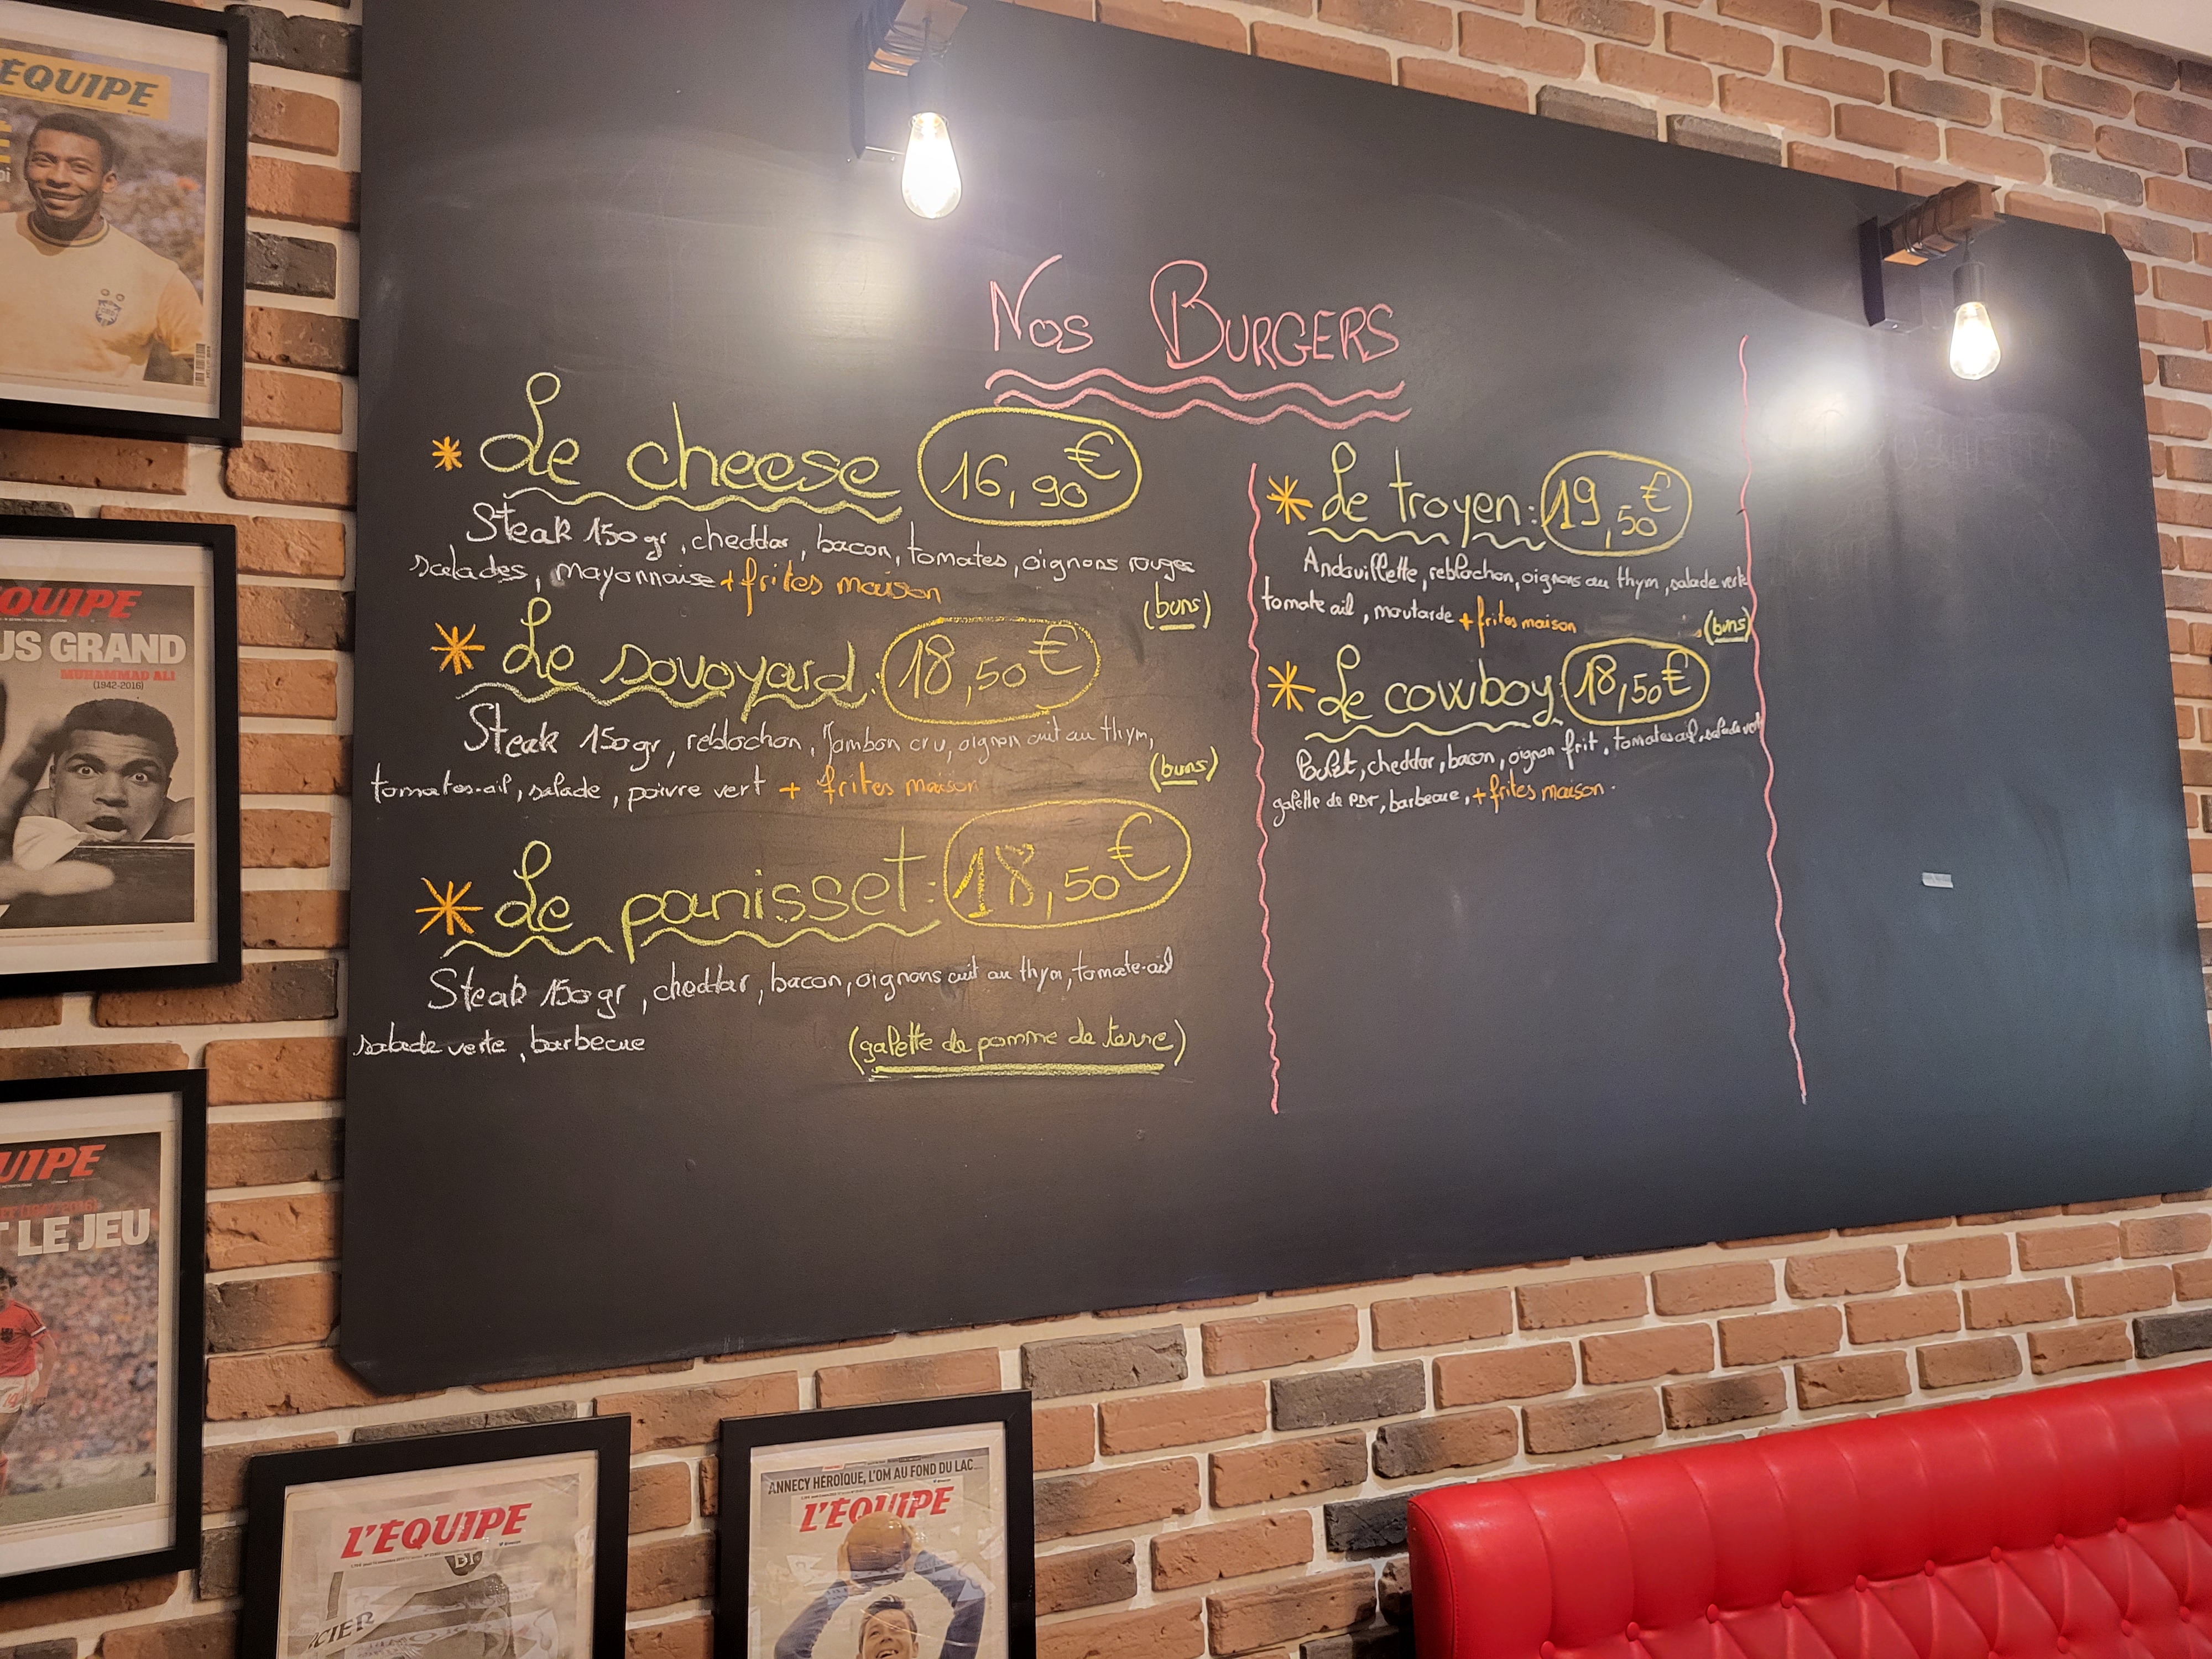 Nos BURGERS
* Le cheese 16,90€
Steak 150gr, cheddar, bacon, tomates, oignons rouges
salades, mayonnaise + frites maison
(buns)
* Le sovoyard: 18,50€
Steak 150gr, reblochon, Jambon cru, oignon cuit au thym,
tomates-ail, salade, poivre vert + frites maison
(buns)
* Le panisset: 18,50€
Steak 150gr, cheddar, bacon, oignons cuit au thym, tomate-ail
salade verte, barbecue
(galette de pomme de terre)
* Le troyen: 19,50€
Andouillette, reblochon, oignons au thym, salade verte
tomate ail, moutarde + frites maison
(buns)
* Le cowboy: 18,50€
Poulet, cheddar, bacon, oignon frit, tomates ail, salade vert
galette de PDT, barbecue, + frites maison.
ÉQUIPE
QUIPE
US GRAND
MUHAMMAD ALI
(1942-2016)
UIPE
T LE JEU
L'ÉQUIPE
CIER
ANNECY HÉROÏQUE, L'OM AU FOND DU LAC...
L'ÉQUIPE